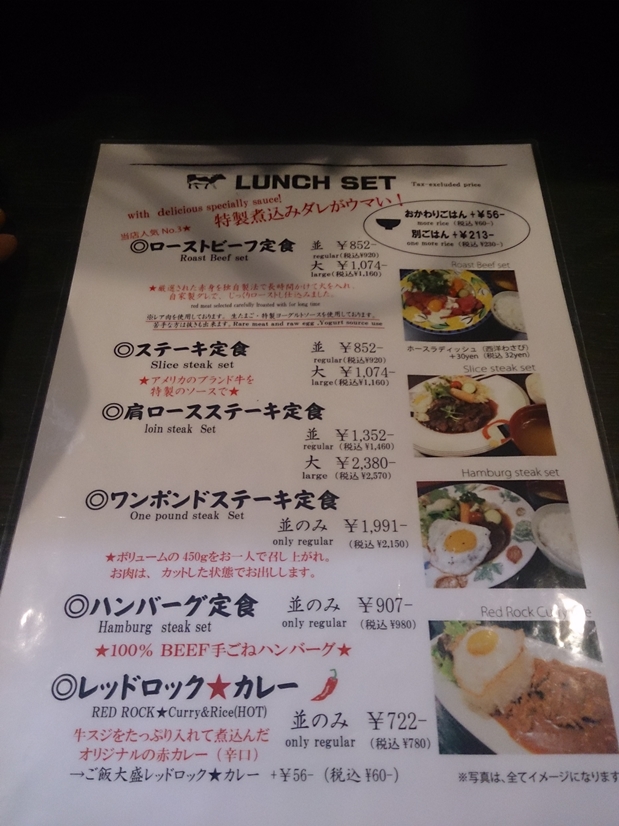 LUNCH SET Tax-excluded price
with delicious specially sauce!
特製煮込みダレがウマい!
おかわりごはん +¥56-
more rice (税込 ¥60-)
別ごはん +¥213-
one more rice (税込 ¥230-)
当店人気 No.3★
◎ローストビーフ定食 並 ¥852-
Roast Beef set regular(税込¥920)
大 ¥1,074-
large(税込¥1,160)
★厳選された赤身を独自製法で長時間かけて火を入れ、
自家製ダレで、じっくりローストし仕込みました。
red meat selected carefully roasted with for long time
※レア肉を使用しております。生たまご・特製ヨーグルトソースを使用しております。
苦手な方は抜きも出来ます。Rare meat and raw egg .Yogurt source use
Roast Beef set
ホースラディッシュ (西洋わさび)
+30yen (税込 32yen)
◎ステーキ定食 並 ¥852-
Slice steak set regular(税込¥920)
大 ¥1,074-
large(税込¥1,160)
★アメリカのブランド牛を
特製のソースで★
Slice steak set
◎肩ロースステーキ定食
loin steak Set
並 ¥1,352-
regular (税込 ¥1,460)
大 ¥2,380-
large (税込 ¥2,570)
Hamburg steak set
◎ワンポンドステーキ定食
One pound steak Set
並のみ ¥1,991-
only regular (税込 ¥2,150)
★ボリュームの 450gをお一人で召し上がれ。
お肉は、カットした状態でお出しします。
◎ハンバーグ定食 並のみ ¥907-
Hamburg steak set only regular (税込 ¥980)
★100% BEEF手ごねハンバーグ★
Red Rock
◎レッドロック★カレー
RED ROCK★Curry&Rice(HOT)
並のみ ¥722-
only regular (税込 ¥780)
牛スジをたっぷり入れて煮込んだ
オリジナルの赤カレー (辛口)
→ご飯大盛レッドロック★カレー +¥56- (税込 ¥60-)
※写真は、全てイメージになります